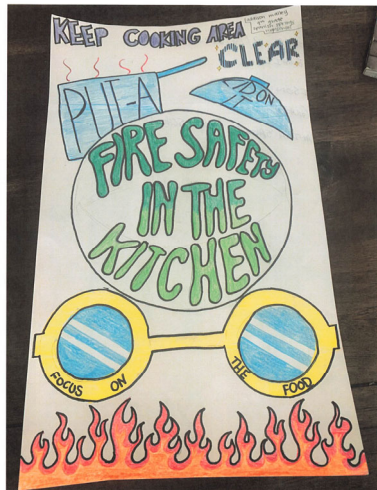 KEEP COOKING AREA
CLEAR
PUT-A
LID ON
IT
FIRE SAFETY
IN THE
KITCHEN
FOCUS ON THE FOOD